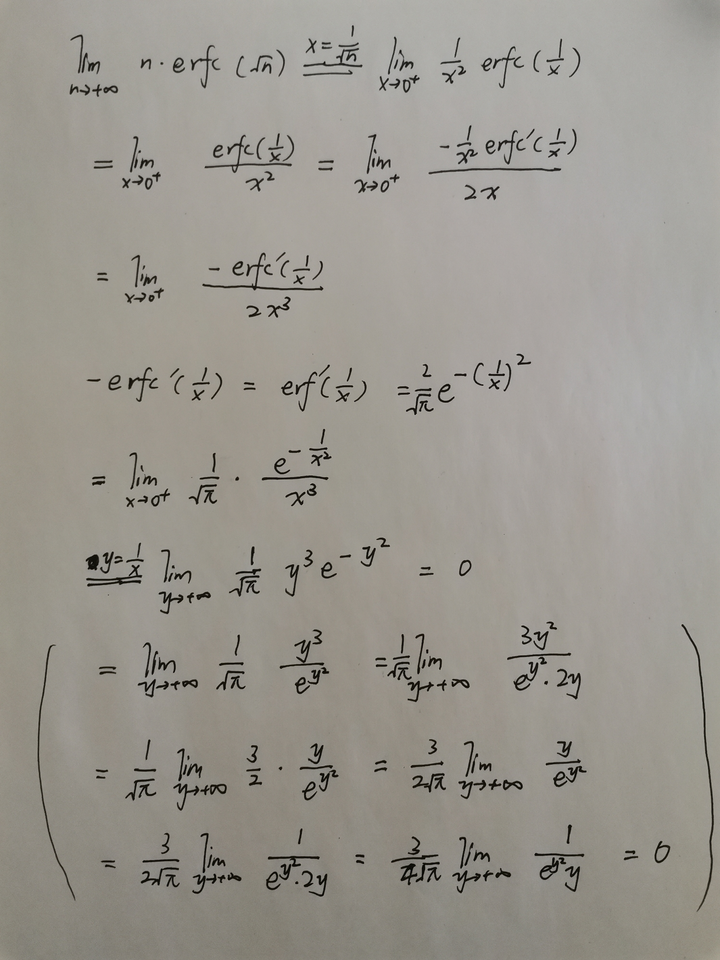 lim_{n→+∞} n·erfc(√n) \xlongequal{x=1/√n} lim_{x→0⁺} 1/x² erfc(1/x)
= lim_{x→0⁺} erfc(1/x)/x² = lim_{x→0⁺} (-1/x² erfc′(1/x))/(2x)
= lim_{x→0⁺} (-erfc′(1/x))/(2x³)
-erfc′(1/x) = erf′(1/x) = 2/√π e^{-(1/x)²}
= lim_{x→0⁺} 1/√π · e^{-1/x²}/x³
\xlongequal{y=1/x} lim_{y→+∞} 1/√π y³e^{-y²} = 0
( = lim_{y→+∞} 1/√π y³/e^{y²} = 1/√π lim_{y→+∞} 3y²/(e^{y²}·2y)
= 1/√π lim_{y→+∞} 3/2 · y/e^{y²} = 3/(2√π) lim_{y→+∞} y/e^{y²}
= 3/(2√π) lim_{y→+∞} 1/(e^{y²}·2y) = 3/(4√π) lim_{y→+∞} 1/(e^{y²}y) = 0 )